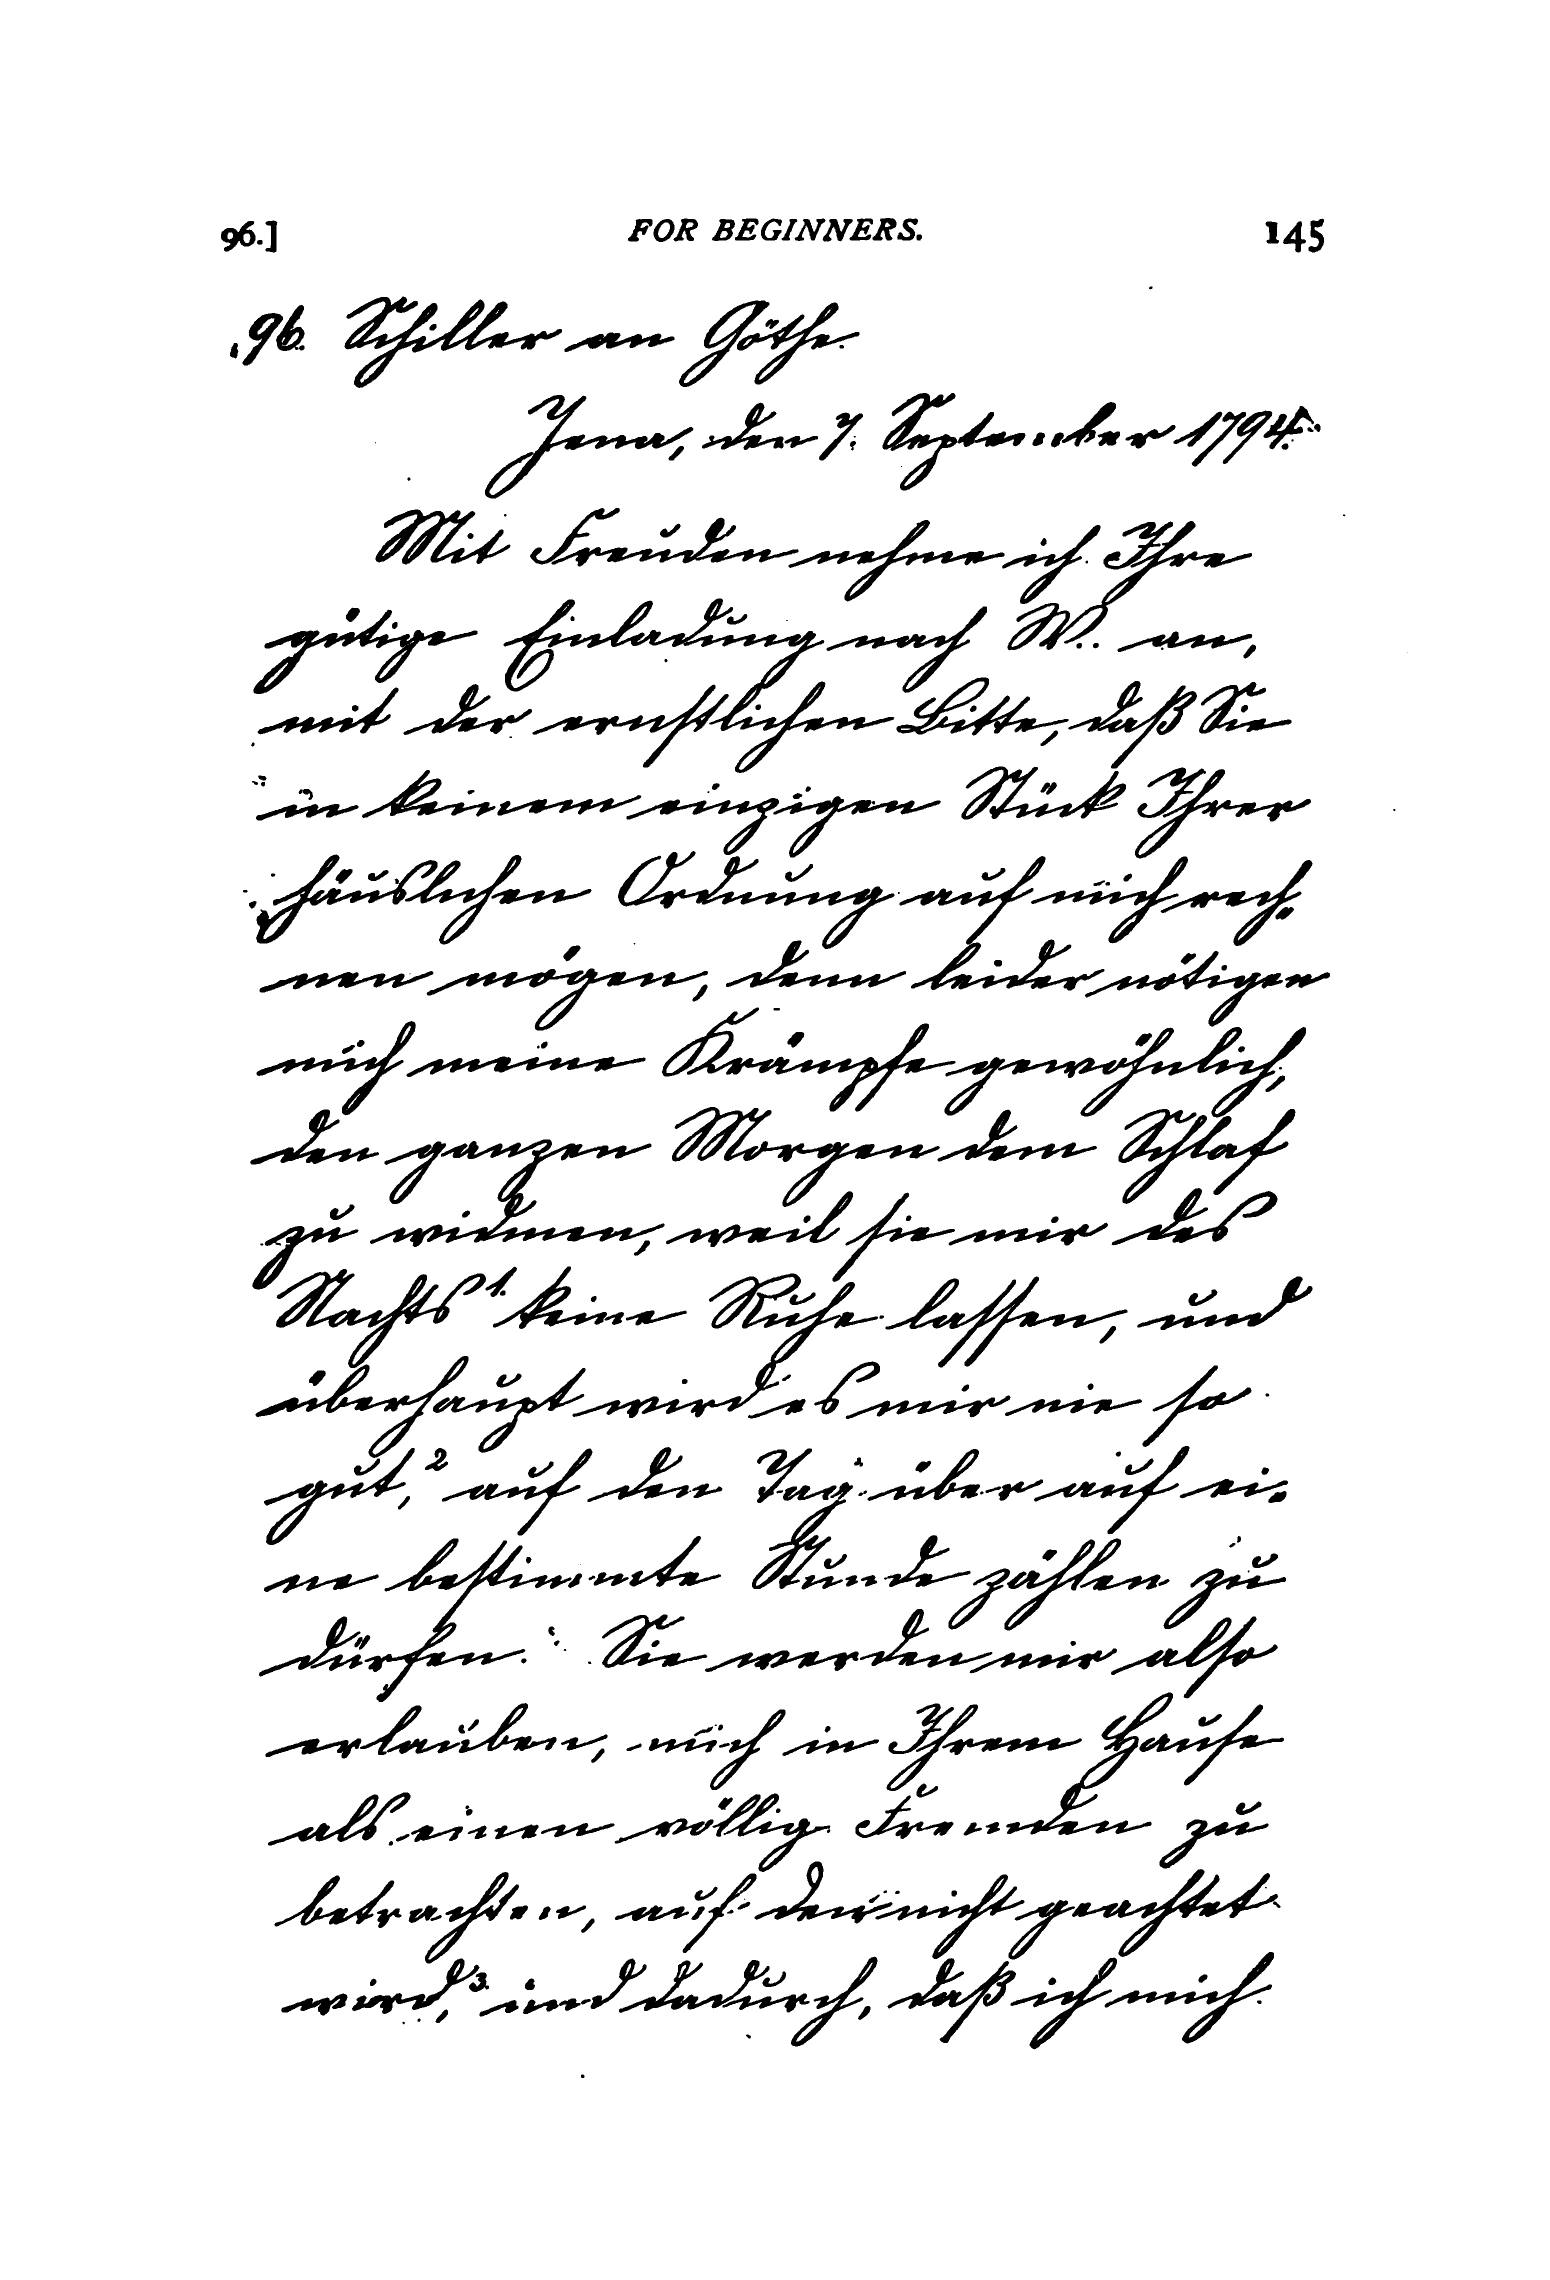 96.] FOR BEGINNERS. 145
96. Schiller an Göthe.
Jena, den 7. September 1794.
Mit Freuden nehme ich Ihre
gütige Einladung nach W.. an,
mit der ernstlichen Bitte, daß Sie
in keinem einzigen Stück Ihrer
häuslichen Ordnung auf mich rech-
nen mögen, denn leider nötigen
mich meine Krämpfe gewöhnlich,
den ganzen Morgen dem Schlaf
zu widmen, weil sie mir des
Nachts¹· keine Ruhe lassen, und
überhaupt wird es mir nie so
gut,² auf den Tag über auf ei-
ne bestimmte Stunde zählen zu
dürfen. Sie werden mir also
erlauben, mich in Ihrem Hause
als einen völlig Fremden zu
betrachten, auf den nicht geachtet
wird,³ und dadurch, daß ich mich